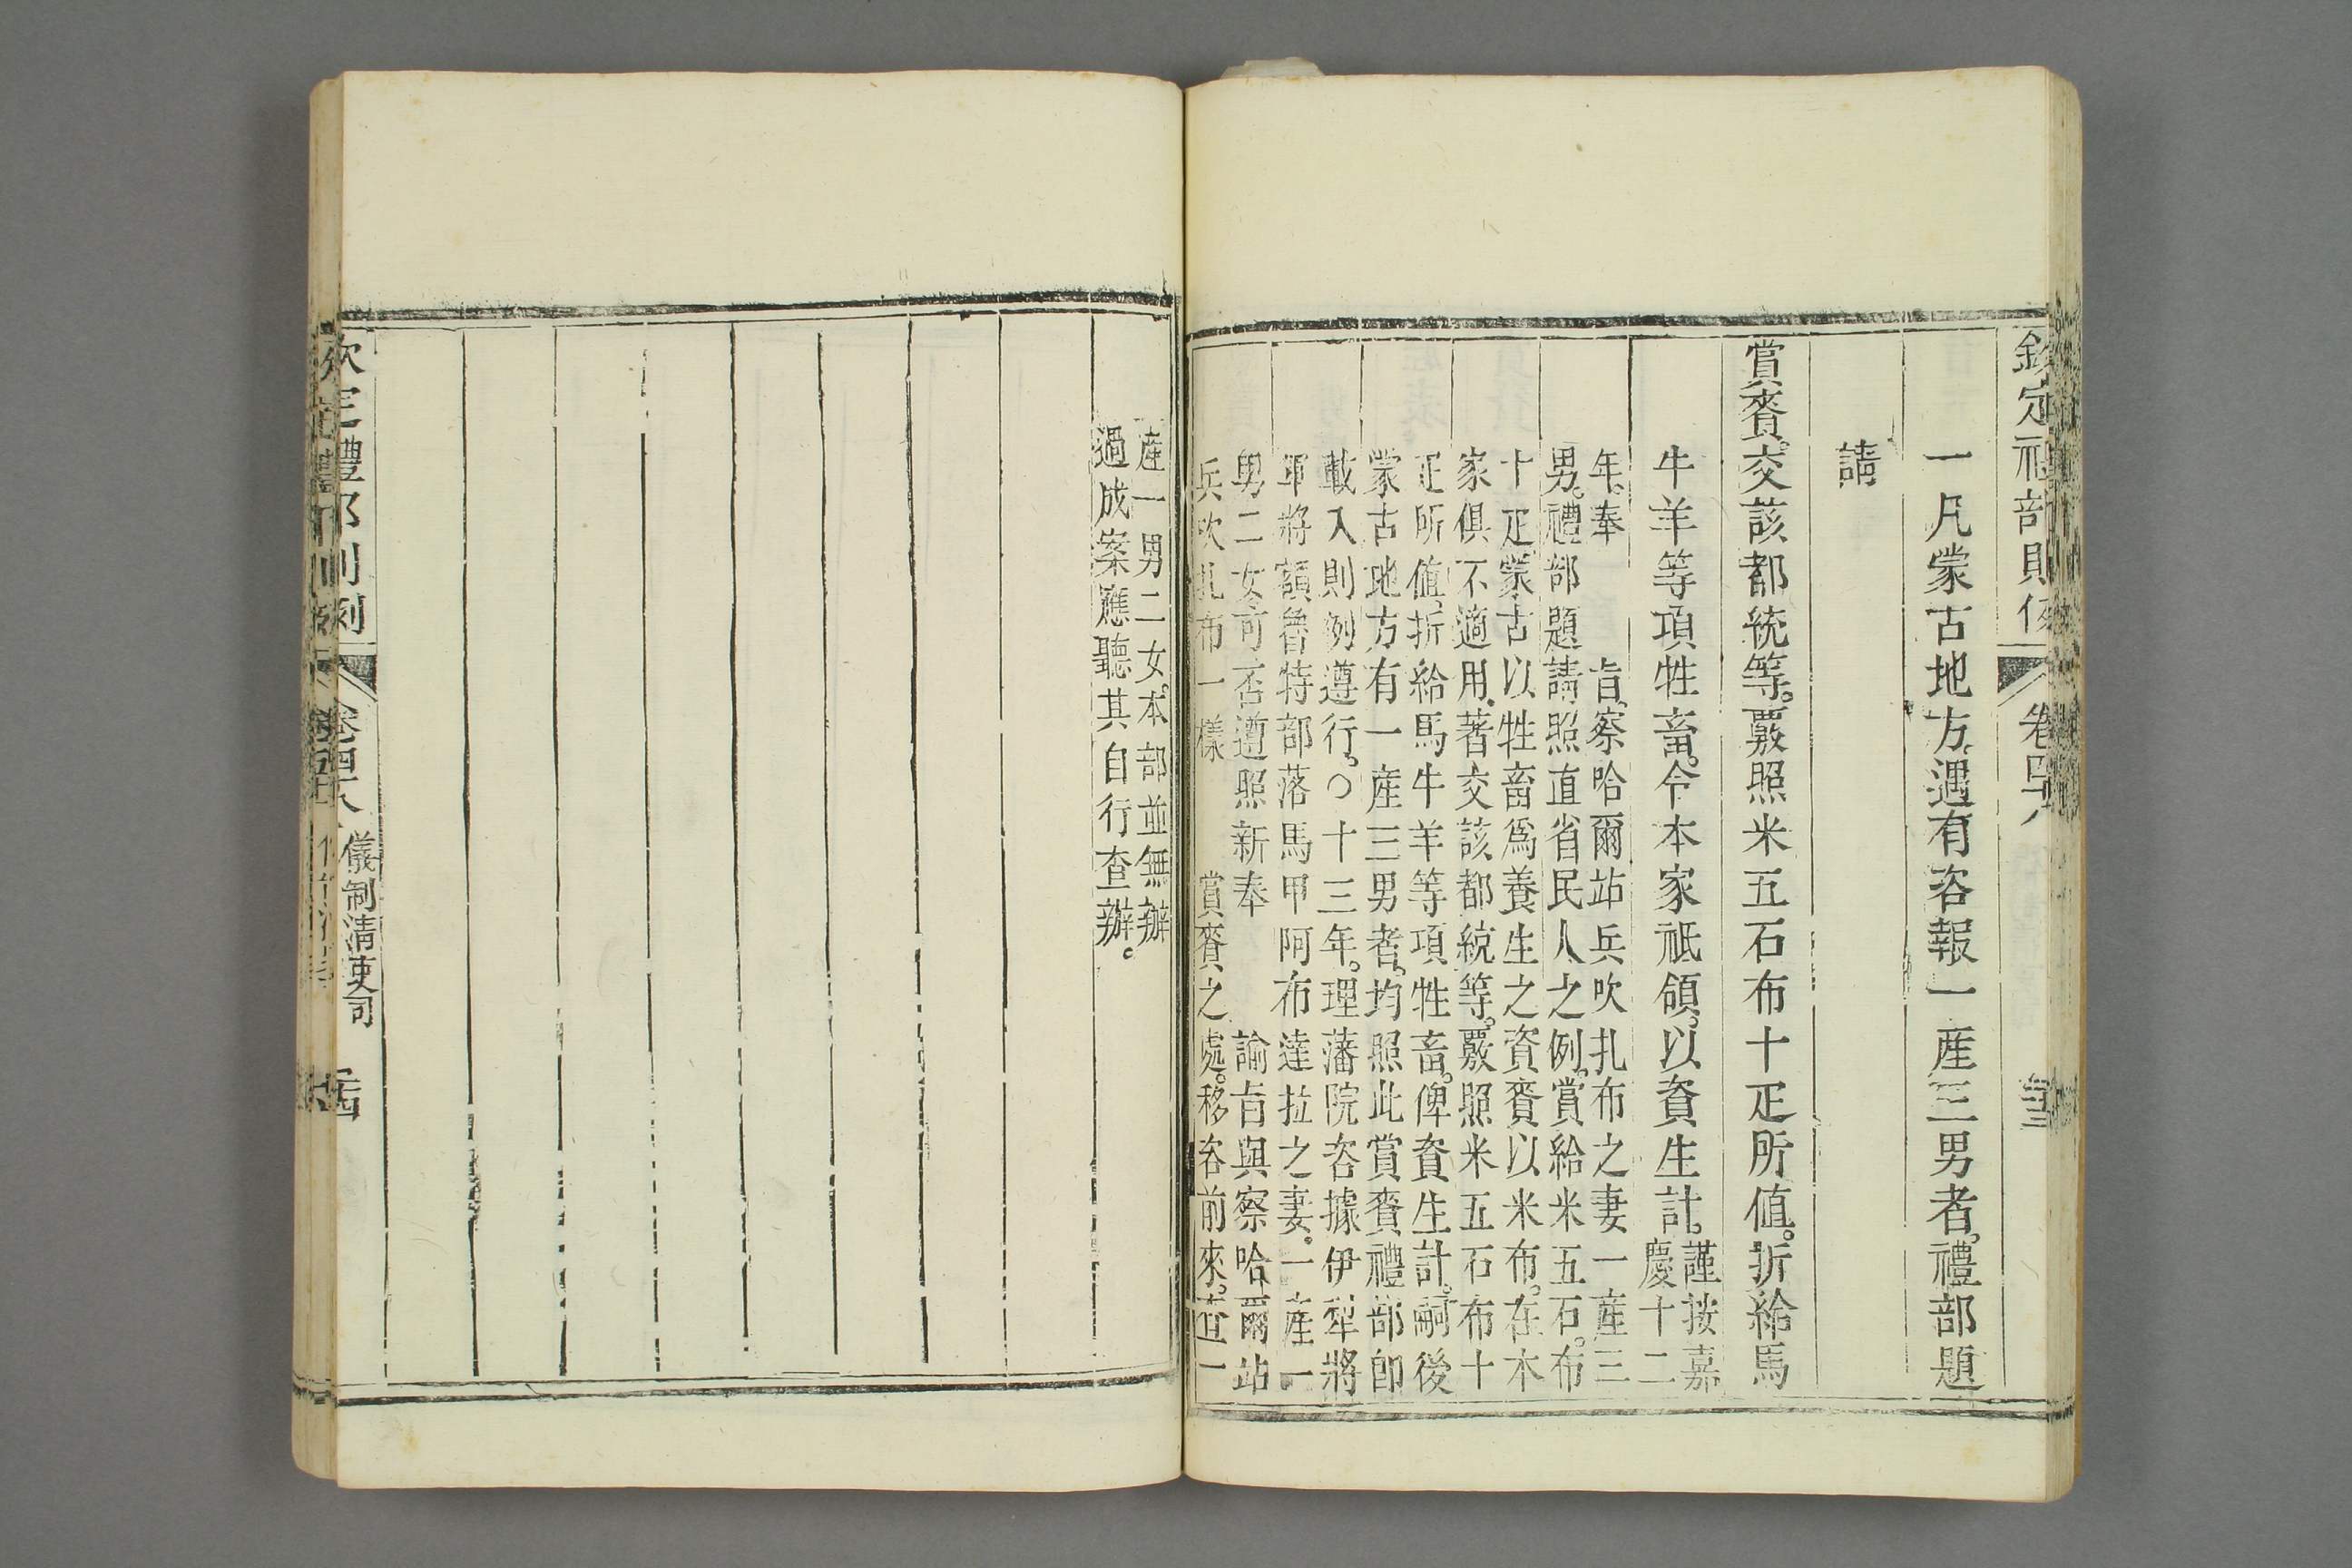 欽定禮部則例 卷四十八
一凡蒙古地方。遇有咨報一產三男者。禮部題
請
賞賚。交該都統等。覈照米五石布十疋所值。折給馬
牛羊等項牲畜。令本家祗領。以資生計。謹按嘉
慶十二
年。奉 旨。察哈爾站兵吹扎布之妻一產三
男。禮部 題請照直省民人之例。賞給米五石。布
十疋。蒙古以牲畜為養生之資賚以米布。在本
家俱不適用。著交該都統等。覈照米五石布十
疋所值。折給馬牛羊等項牲畜。俾資生計。嗣後
蒙古地方有一產三男者。均照此賞賚禮部即
載入則例遵行。○十三年。理藩院咨據伊犂將
軍將額魯特部落馬甲阿布達拉之妻。一產一
男二女可否遵照新奉 諭旨與察哈爾站
兵吹扎布一樣 賞賚之處。移咨前來。查一
產一男二女。本部並無辦
過成案應聽其自行查辦。
欽定禮部則例 卷四十八 儀制清吏司